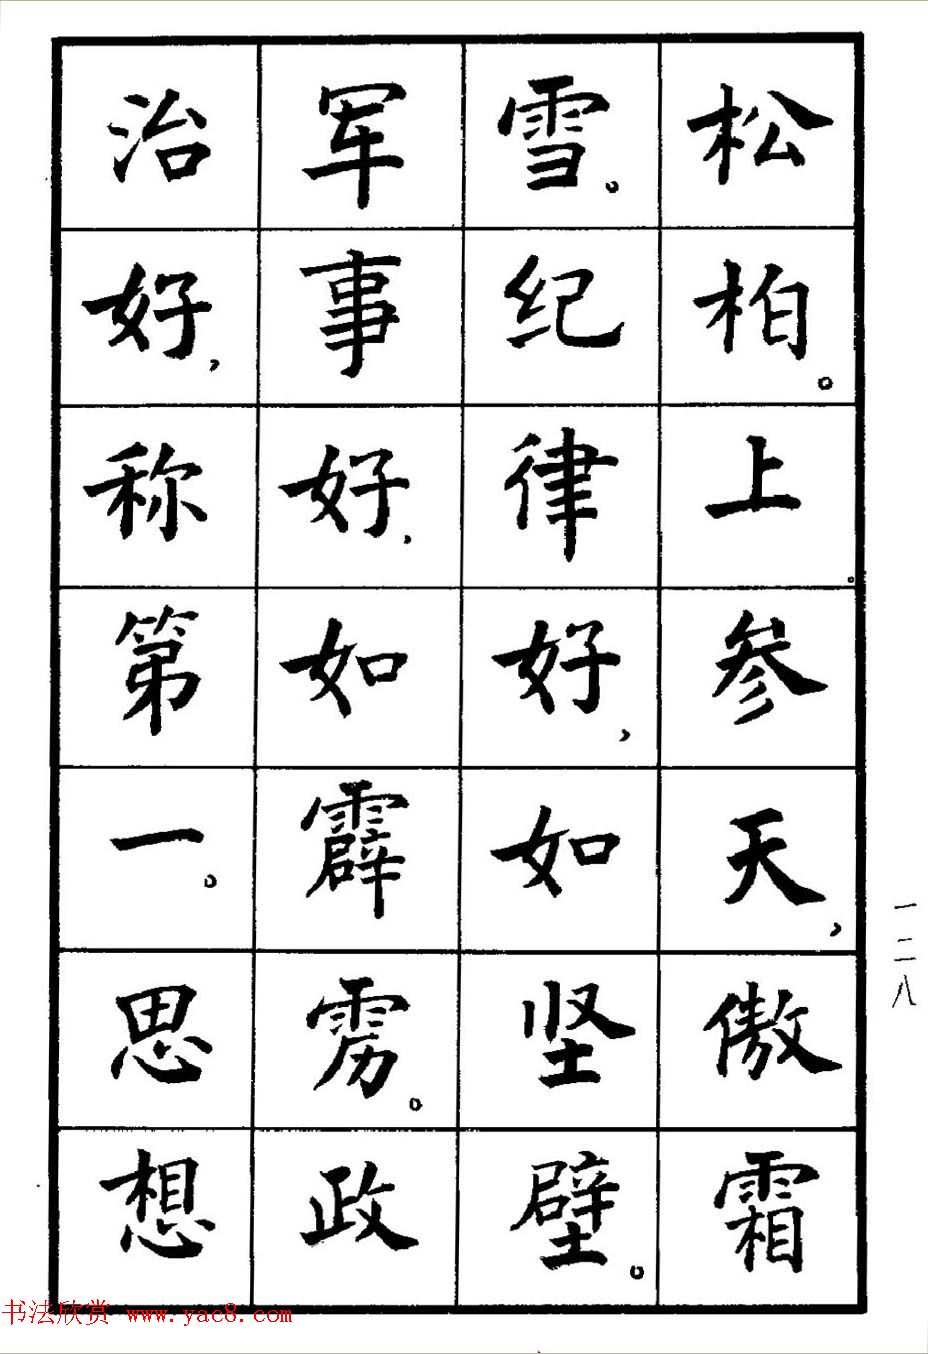 松柏。上参天，傲霜
雪。纪律好，如坚壁。
军事好，如霹雳。政
治好，称第一。思想
一二八
书法欣赏 www.yac8.com